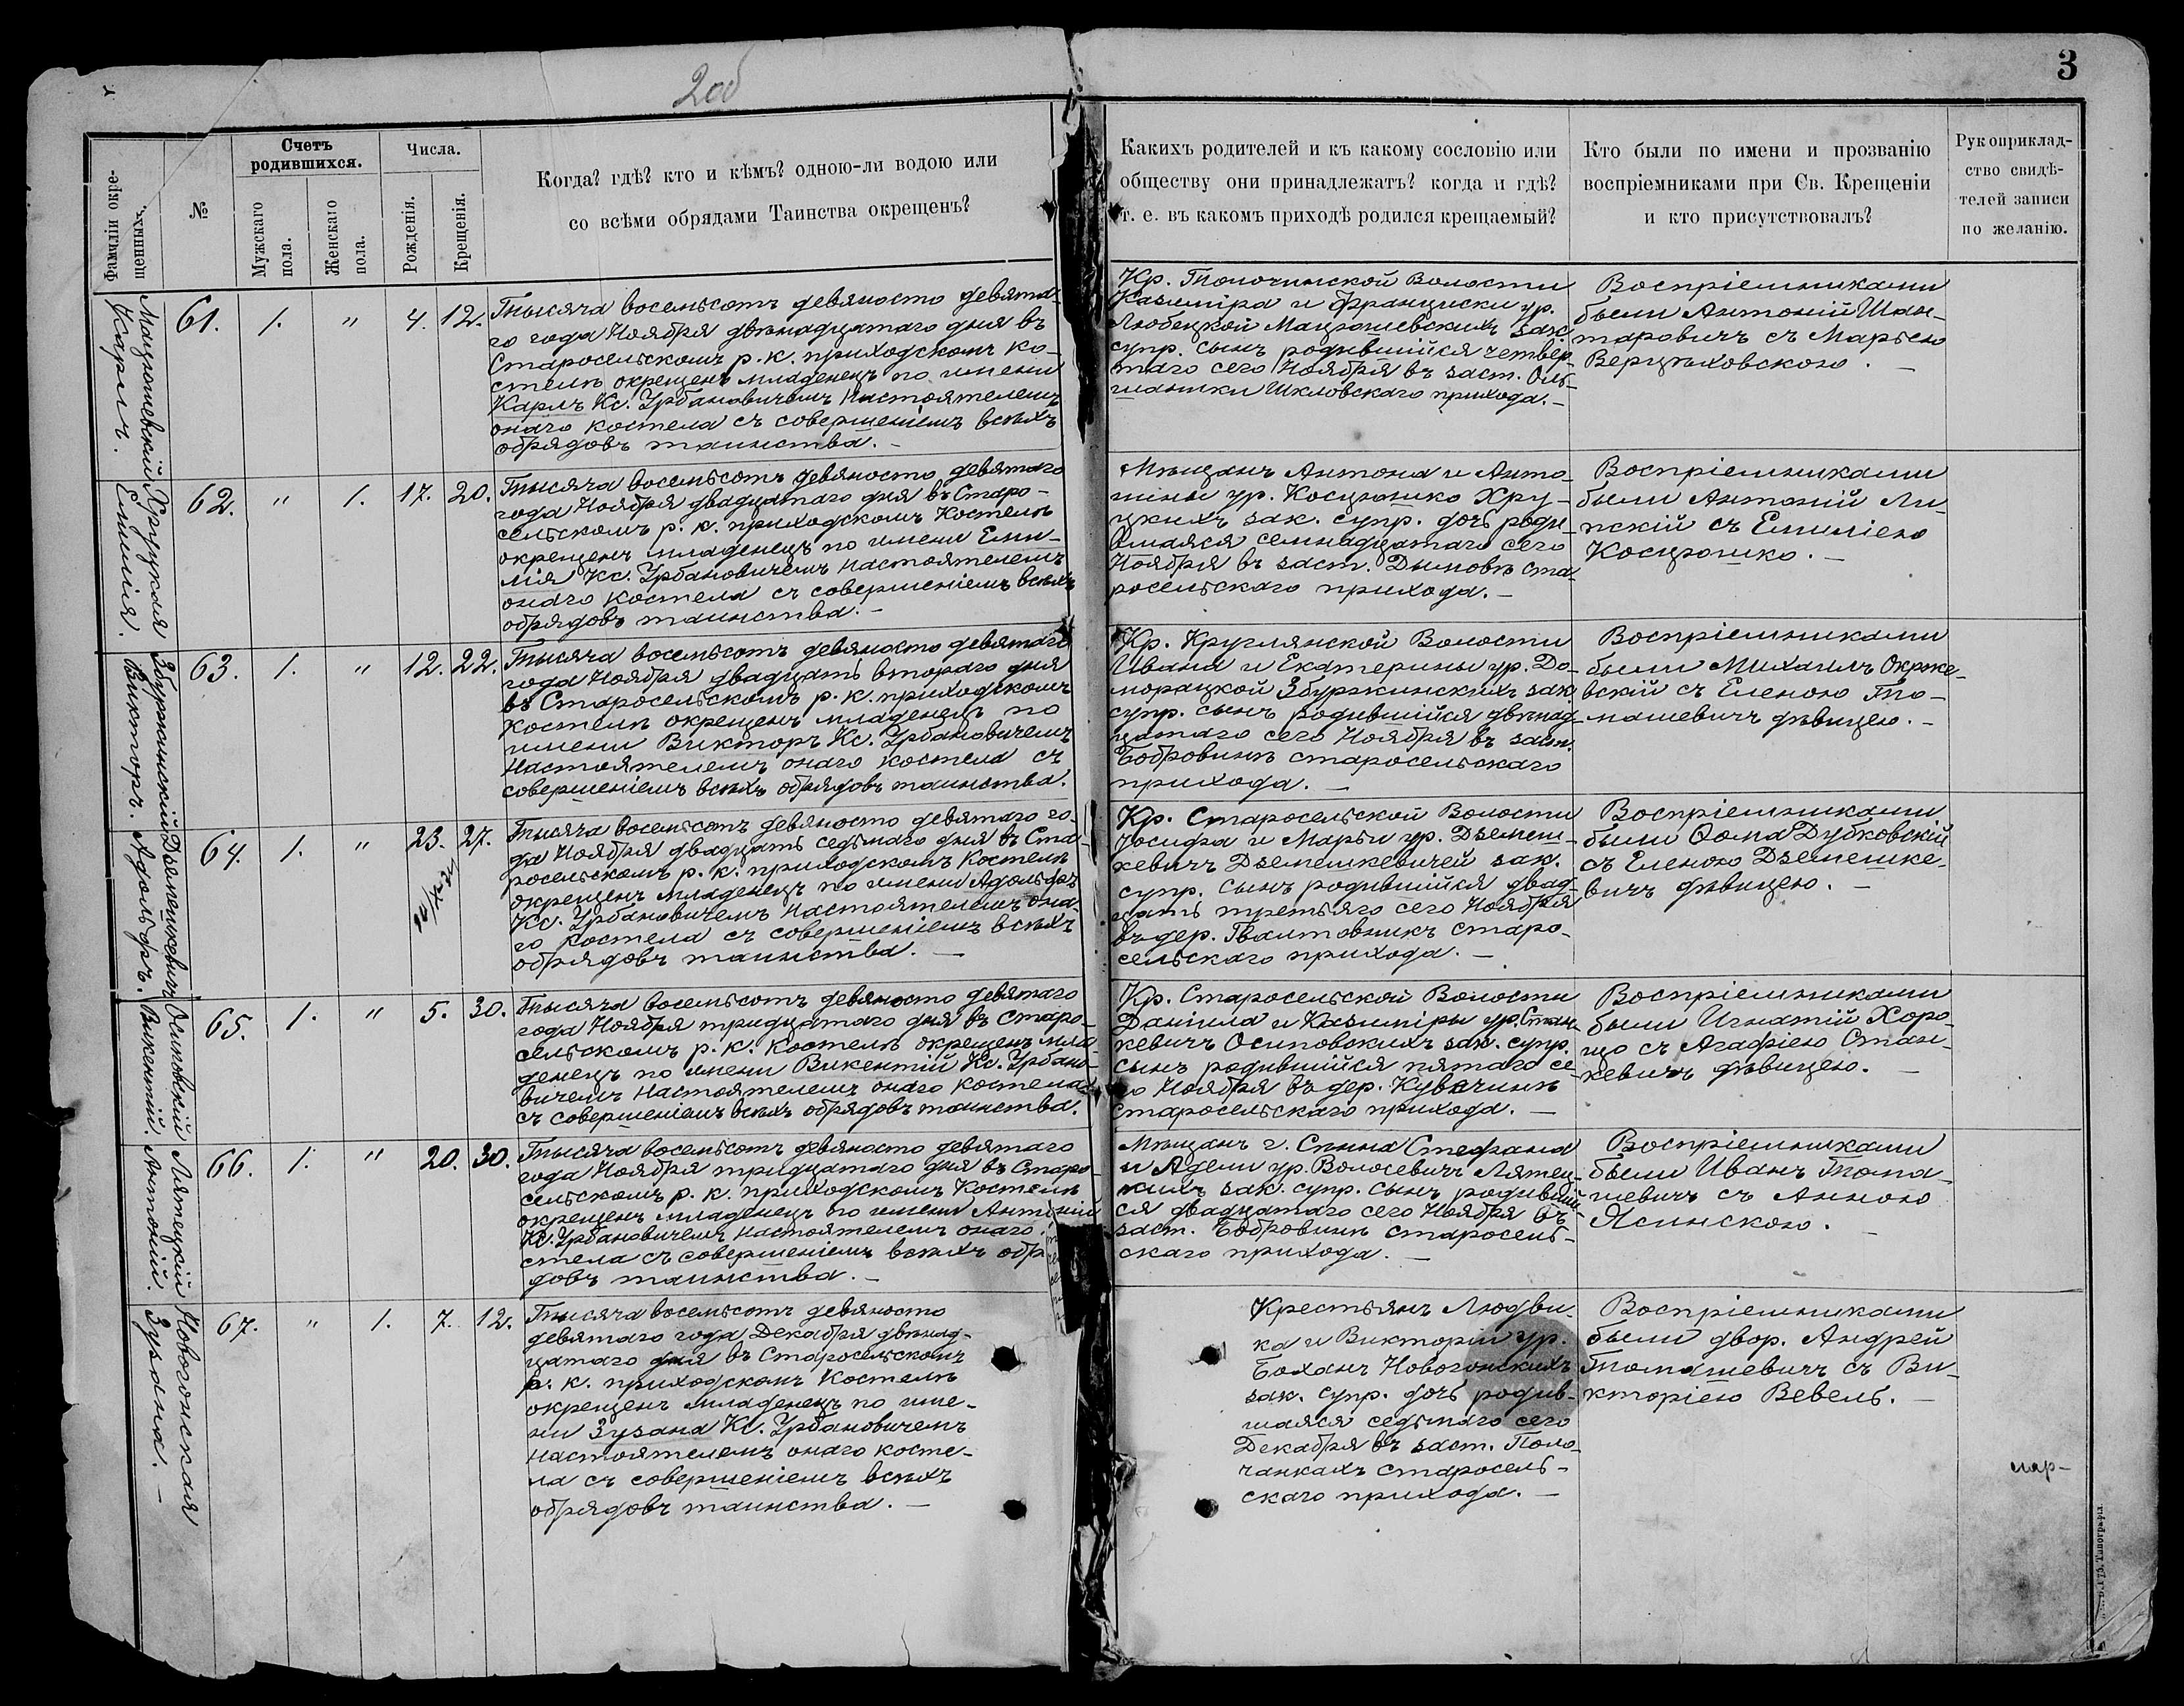 2об
3
Фамиліи окре-
щенныхъ.
№
Счетъ
родившихся.
Мужскаго
пола.
Женскаго
пола.
Числа.
Рожденія.
Крещенія.
Когда? гдѣ? кто и кѣмъ? одною-ли водою или
со всѣми обрядами Таинства окрещенъ?
Какихъ родителей и къ какому сословію или
обществу они принадлежатъ? когда и гдѣ?
т. е. въ какомъ приходѣ родился крещаемый?
Кто были по имени и прозванію
воспріемниками при Св. Крещеніи
и кто присутствовалъ?
Рукоприклад-
ство свидѣ-
телей записи
по желанію.
Мацюшевскій
Карлъ.
61. 1. " 4. 12.
Тысяча восемьсотъ девяносто девята-
го года Ноября двѣнадцатаго дня въ
Старосельскомъ р. к. приходскомъ ко-
стелѣ окрещенъ младенецъ по имени
Карлъ Кс. Урбановичемъ Настоятелемъ
онаго костела съ совершеніемъ всѣхъ
обрядовъ таинства. –
Кр. Толочинской Волости
Казиміра и Франциски ур.
Любецкой Мацюшевскихъ зак.
супр. сынъ родившійся четвер-
таго сего Ноября въ заст. Оль-
шанки Шкловскаго прихода. –
Воспріемниками
были Антоній Шан-
таровичъ съ Марьею
Верцѣховскою. –
Хруцкая
Емилія.
62. " 1. 17. 20.
Тысяча восемьсотъ девяносто девятаго
года Ноября двадцатаго дня въ Старо-
сельскомъ р. к. приходскомъ Костелѣ
окрещенъ младенецъ по имени Еми-
лія Кс. Урбановичемъ Настоятелемъ
онаго костела съ совершеніемъ всѣхъ
обрядовъ таинства. –
Мѣщанъ Антона и Анто-
нины ур. Косцюшко Хру-
цкихъ зак. супр. дочь роди-
вшаяся семнадцатаго сего
Ноября въ заст. Дымовѣ ста-
росельскаго прихода. –
Воспріемниками
были Антоній Ли-
пскій съ Емиліею
Косцюшко. –
Збуржинскій
Викторъ.
63. 1. " 12. 22.
Тысяча восемьсотъ девяносто девятаго
года Ноября двадцать втораго дня
въ Старосельскомъ р. к. приходскомъ
Костелѣ окрещенъ младенецъ по
имени Викторъ Кс. Урбановичемъ
Настоятелемъ онаго костела съ
совершеніемъ всѣхъ обрядовъ таинства.
Кр. Круглянской Волости
Ивана и Екатерины ур. До-
морацкой Збуржинскихъ зак.
супр. сынъ родившійся двѣнад-
цатаго сего Ноября въ заст.
Бобровинѣ старосельскаго
прихода. –
Воспріемниками
были Михаилъ Окреже-
вскій съ Еленою То-
машевичъ дѣвицею. –
Дземешкевичъ
Адольфъ.
64. 1. " 23. 27.
Тысяча восемьсотъ девяносто девятаго го-
да Ноября двадцать седьмаго дня въ Ста-
росельскомъ р. к. приходскомъ Костелѣ
окрещенъ младенецъ по имени Адольфъ
Кс. Урбановичемъ Настоятелемъ она-
го костела съ совершеніемъ всѣхъ
обрядовъ таинства. –
Кр. Старосельской Волости
Іосифа и Марьи ур. Дземеш-
кевичъ Дземешкевичей зак.
супр. сынъ родившійся двад-
цать третьяго сего Ноября
въ дер. Гвалтовникъ старо-
сельскаго прихода. –
Воспріемниками
были Ѳома Дубковскій
съ Еленою Дземешке-
вичъ дѣвицею. –
Осиповскій
Викентій.
65. 1. " 5. 30.
Тысяча восемьсотъ девяносто девятаго
года Ноября тридцатаго дня въ Старо-
сельскомъ р. к. Костелѣ окрещенъ мла-
денецъ по имени Викентій Кс. Урбано-
вичемъ Настоятелемъ онаго костела
съ совершеніемъ всѣхъ обрядовъ таинства.
Кр. Старосельской Волости
Даніила и Казиміры ур. Стан-
кевичъ Осиповскихъ зак. супр.
сынъ родившійся пятаго се-
го Ноября въ дер. Кувечинѣ
старосельскаго прихода. –
Воспріемниками
были Игнатій Хоро-
що съ Агафіею Стан-
кевичъ дѣвицею. –
Лятецкій
Антоній.
66. 1. " 20. 30.
Тысяча восемьсотъ девяносто девятаго
года Ноября тридцатаго дня въ Старо-
сельскомъ р. к. приходскомъ Костелѣ
окрещенъ младенецъ по имени Антоній
Кс. Урбановичемъ Настоятелемъ онаго
стела съ совершеніемъ всѣхъ обря
довъ таинства. –
Мѣщанъ г. Сѣнна Стефана
и Адели ур. Волосевичъ Лятец-
кихъ зак. супр. сынъ родивший-
ся двадцатаго сего Ноября въ
заст. Бобровинѣ старосель-
скаго прихода. –
Воспріемниками
были Иванъ Тома-
шевичъ съ Анною
Ясинскою. –
Новогонская
Зузана. –
67. " 1. 7. 12.
Тысяча восемьсотъ девяносто
девятаго года Декабря двѣнад-
цатаго дня въ Старосельскомъ
р. к. приходскомъ Костелѣ
окрещенъ младенецъ по име-
ни Зузана Кс. Урбановичемъ
Настоятелемъ онаго косте-
ла съ совершеніемъ всѣхъ
обрядовъ таинства. –
Крестьянъ Людви-
ка и Викторіи ур.
Боханъ Новогонскихъ
зак. супр. дочь родив-
шаяся седьмаго сего
Декабря въ заст. Поло-
чанкахъ старосель-
скаго прихода. –
Воспріемниками
были двор. Андрей
Томашевичъ съ Ви-
кторіею Вевель. –